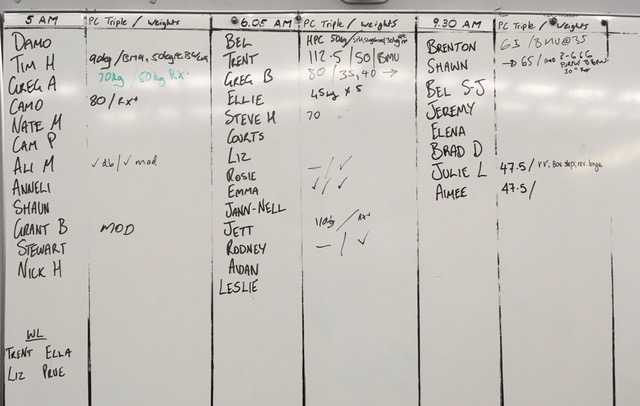 5 AM PC Triple / weights
DAMO
TIM H 90kg / BMA, 50kg
GREG A 70kg / 60kg RX
CAMO 80 / RX+
NATE M
CAM P
ALI M ✓ db / ✓ mod
ANNELI
SHAUN
GRANT B MOD
STEWART
NICK H
WL
TRENT ELLA
LIZ PRUE
6.05 AM PC Triple / weights
BEL HPC 50kg /
TRENT 112.5 / 50 / BMU
GREG B 80 / 35, 40 →
ELLIE 45kg x 5
STEVE H 70
COURTS
LIZ
ROSIE — / ✓
EMMA ✓ / ✓
JANN-NELL
JETT 110kg / RX+
RODNEY — / ✓
AIDAN
LESLIE
9.30 AM PC Triple / weights
BRENTON 65 / BMU @ 35
SHAWN → 65 /
BEL S-J
JEREMY
ELENA
BRAD D
JULIE L 47.5 / rr, box step, rev. lunge
AIMEE 47.5 /